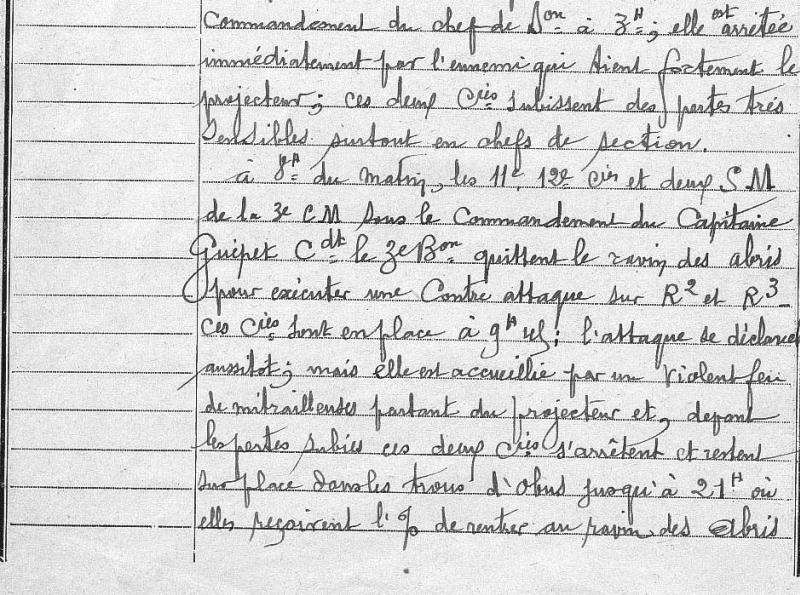 Commandement du chef de Son à 3H; elle est arrêtée
immédiatement par l'ennemi qui tient fortement le
projecteur; ces deux Cies subissent des pertes très
sensibles surtout en chefs de section.
à 8H du matin, les 11e, 12e Cies et deux S M
de la 3e C M sous le Commandement du Capitaine
Guépet Cdt le 3e Bon quittent le ravin des abris
pour exécuter une Contre attaque sur R2 et R3_
ces Cies sont en place à 9H 45; l'attaque se déclanche
aussitot; mais elle est accueillie par un violent feu
de mitrailleuses partant du projecteur et, devant
les pertes subies ces deux Cies s'arrêtent et restent
sur place dans les trous d'obus jusqu'à 21H où
elles reçoivent l'% de rentrer au ravin des abris